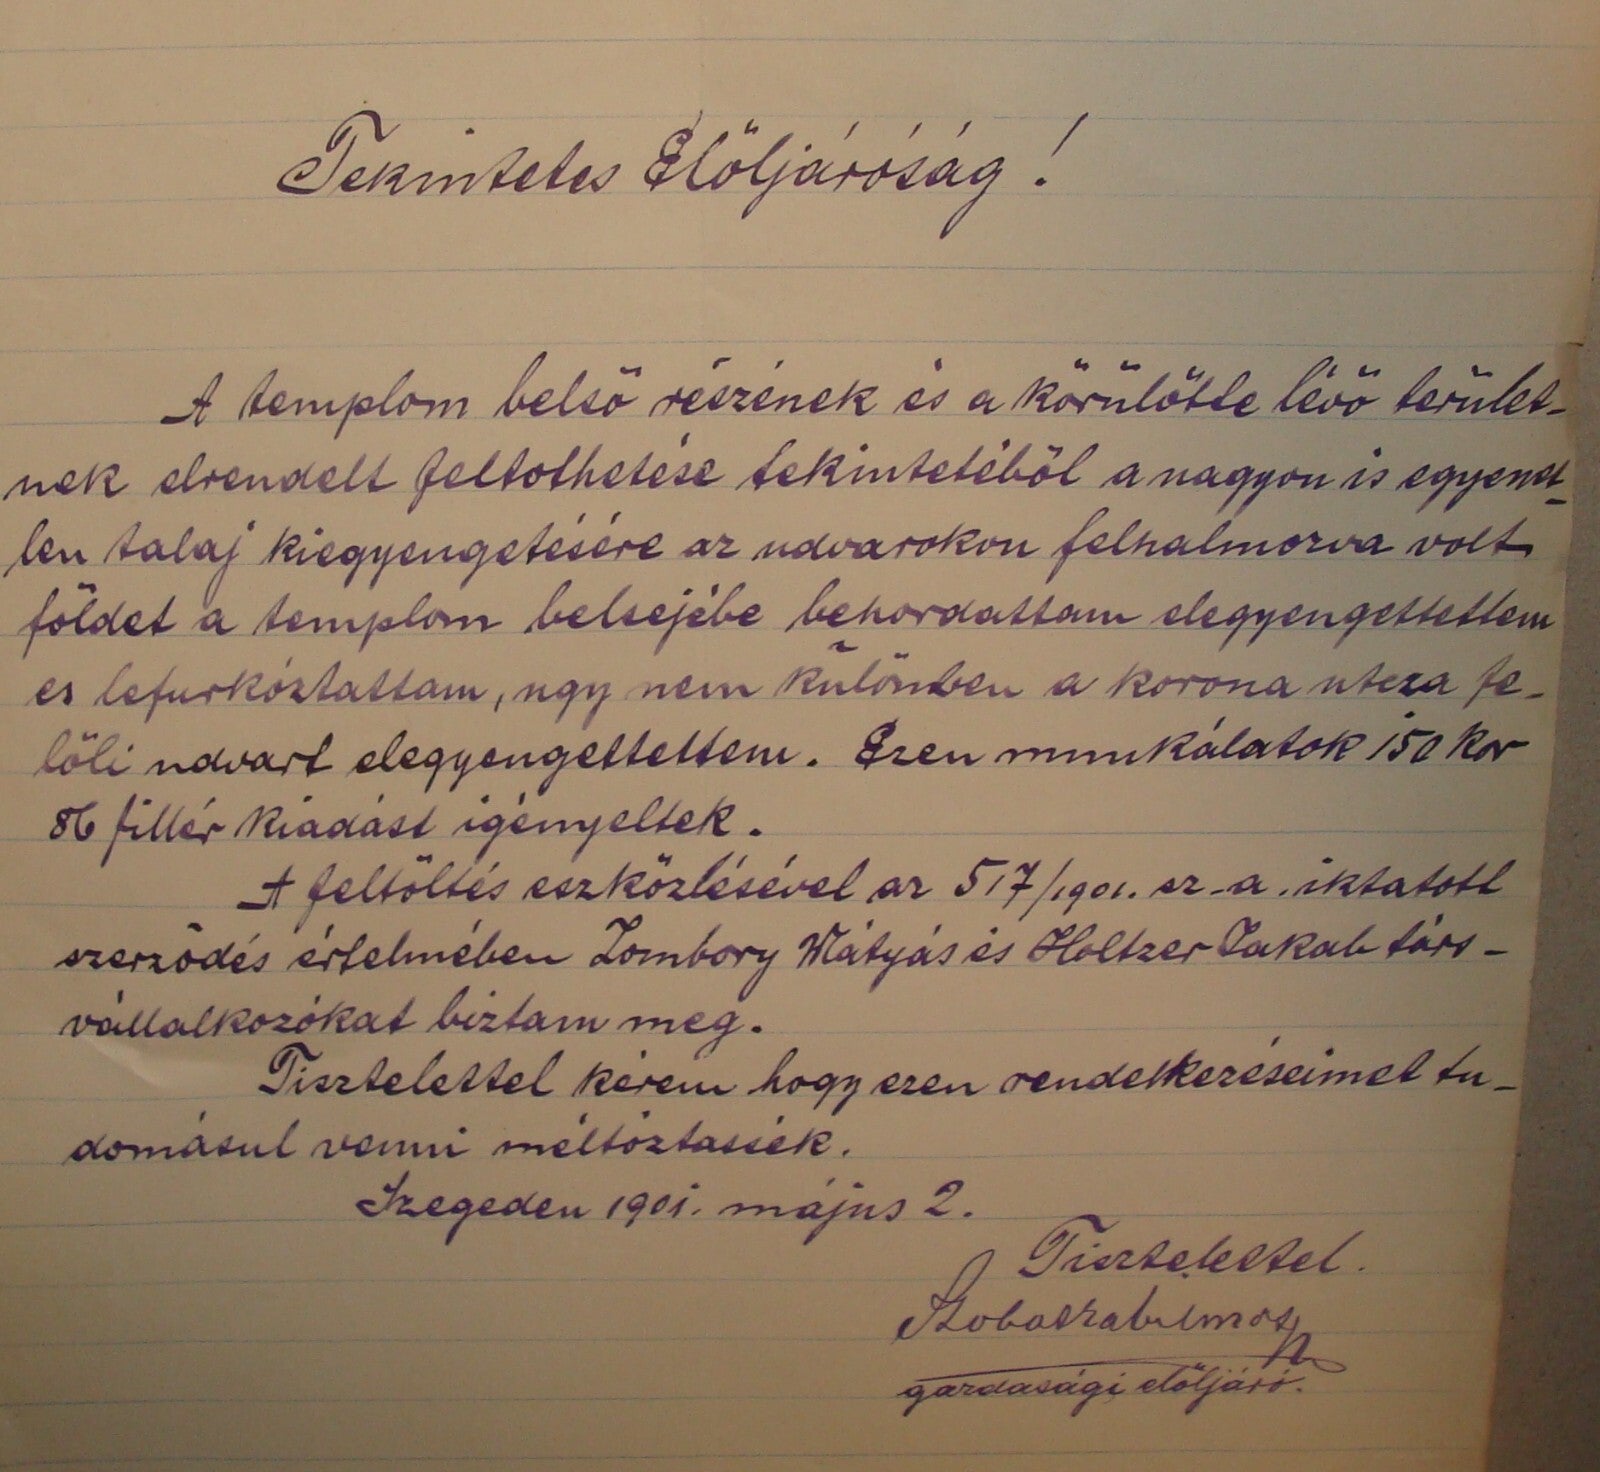 Tekintetes Elöljáróság!
A templom belső részének és a körülötte lévő terület-
nek elrendelt feltölthetése tekintetéből a nagyon is egyenet-
len talaj kiegyengetésére az udvarokon felhalmozva volt
földet a templom belsejébe behordattam elegyengettettem
es lefurkóztattam, ugy nem külömben a korona utcza fe-
löli udvart elegyengettettem. Ezen munkálatok 150 kor
86 fillér kiadást igényeltek.
A feltöltés eszközlésével az 517/1901. sz-a. iktatott
szerződés értelmében Zombory Mátyás és Holtzer Jakab társ-
vállalkozókat biztam meg.
Tisztelettel kérem hogy ezen rendelkezéseimet tu-
domásul venni méltóztassék.
Szegeden 1901. május 2.
Tisztelettel.
gazdasági elöljáró.